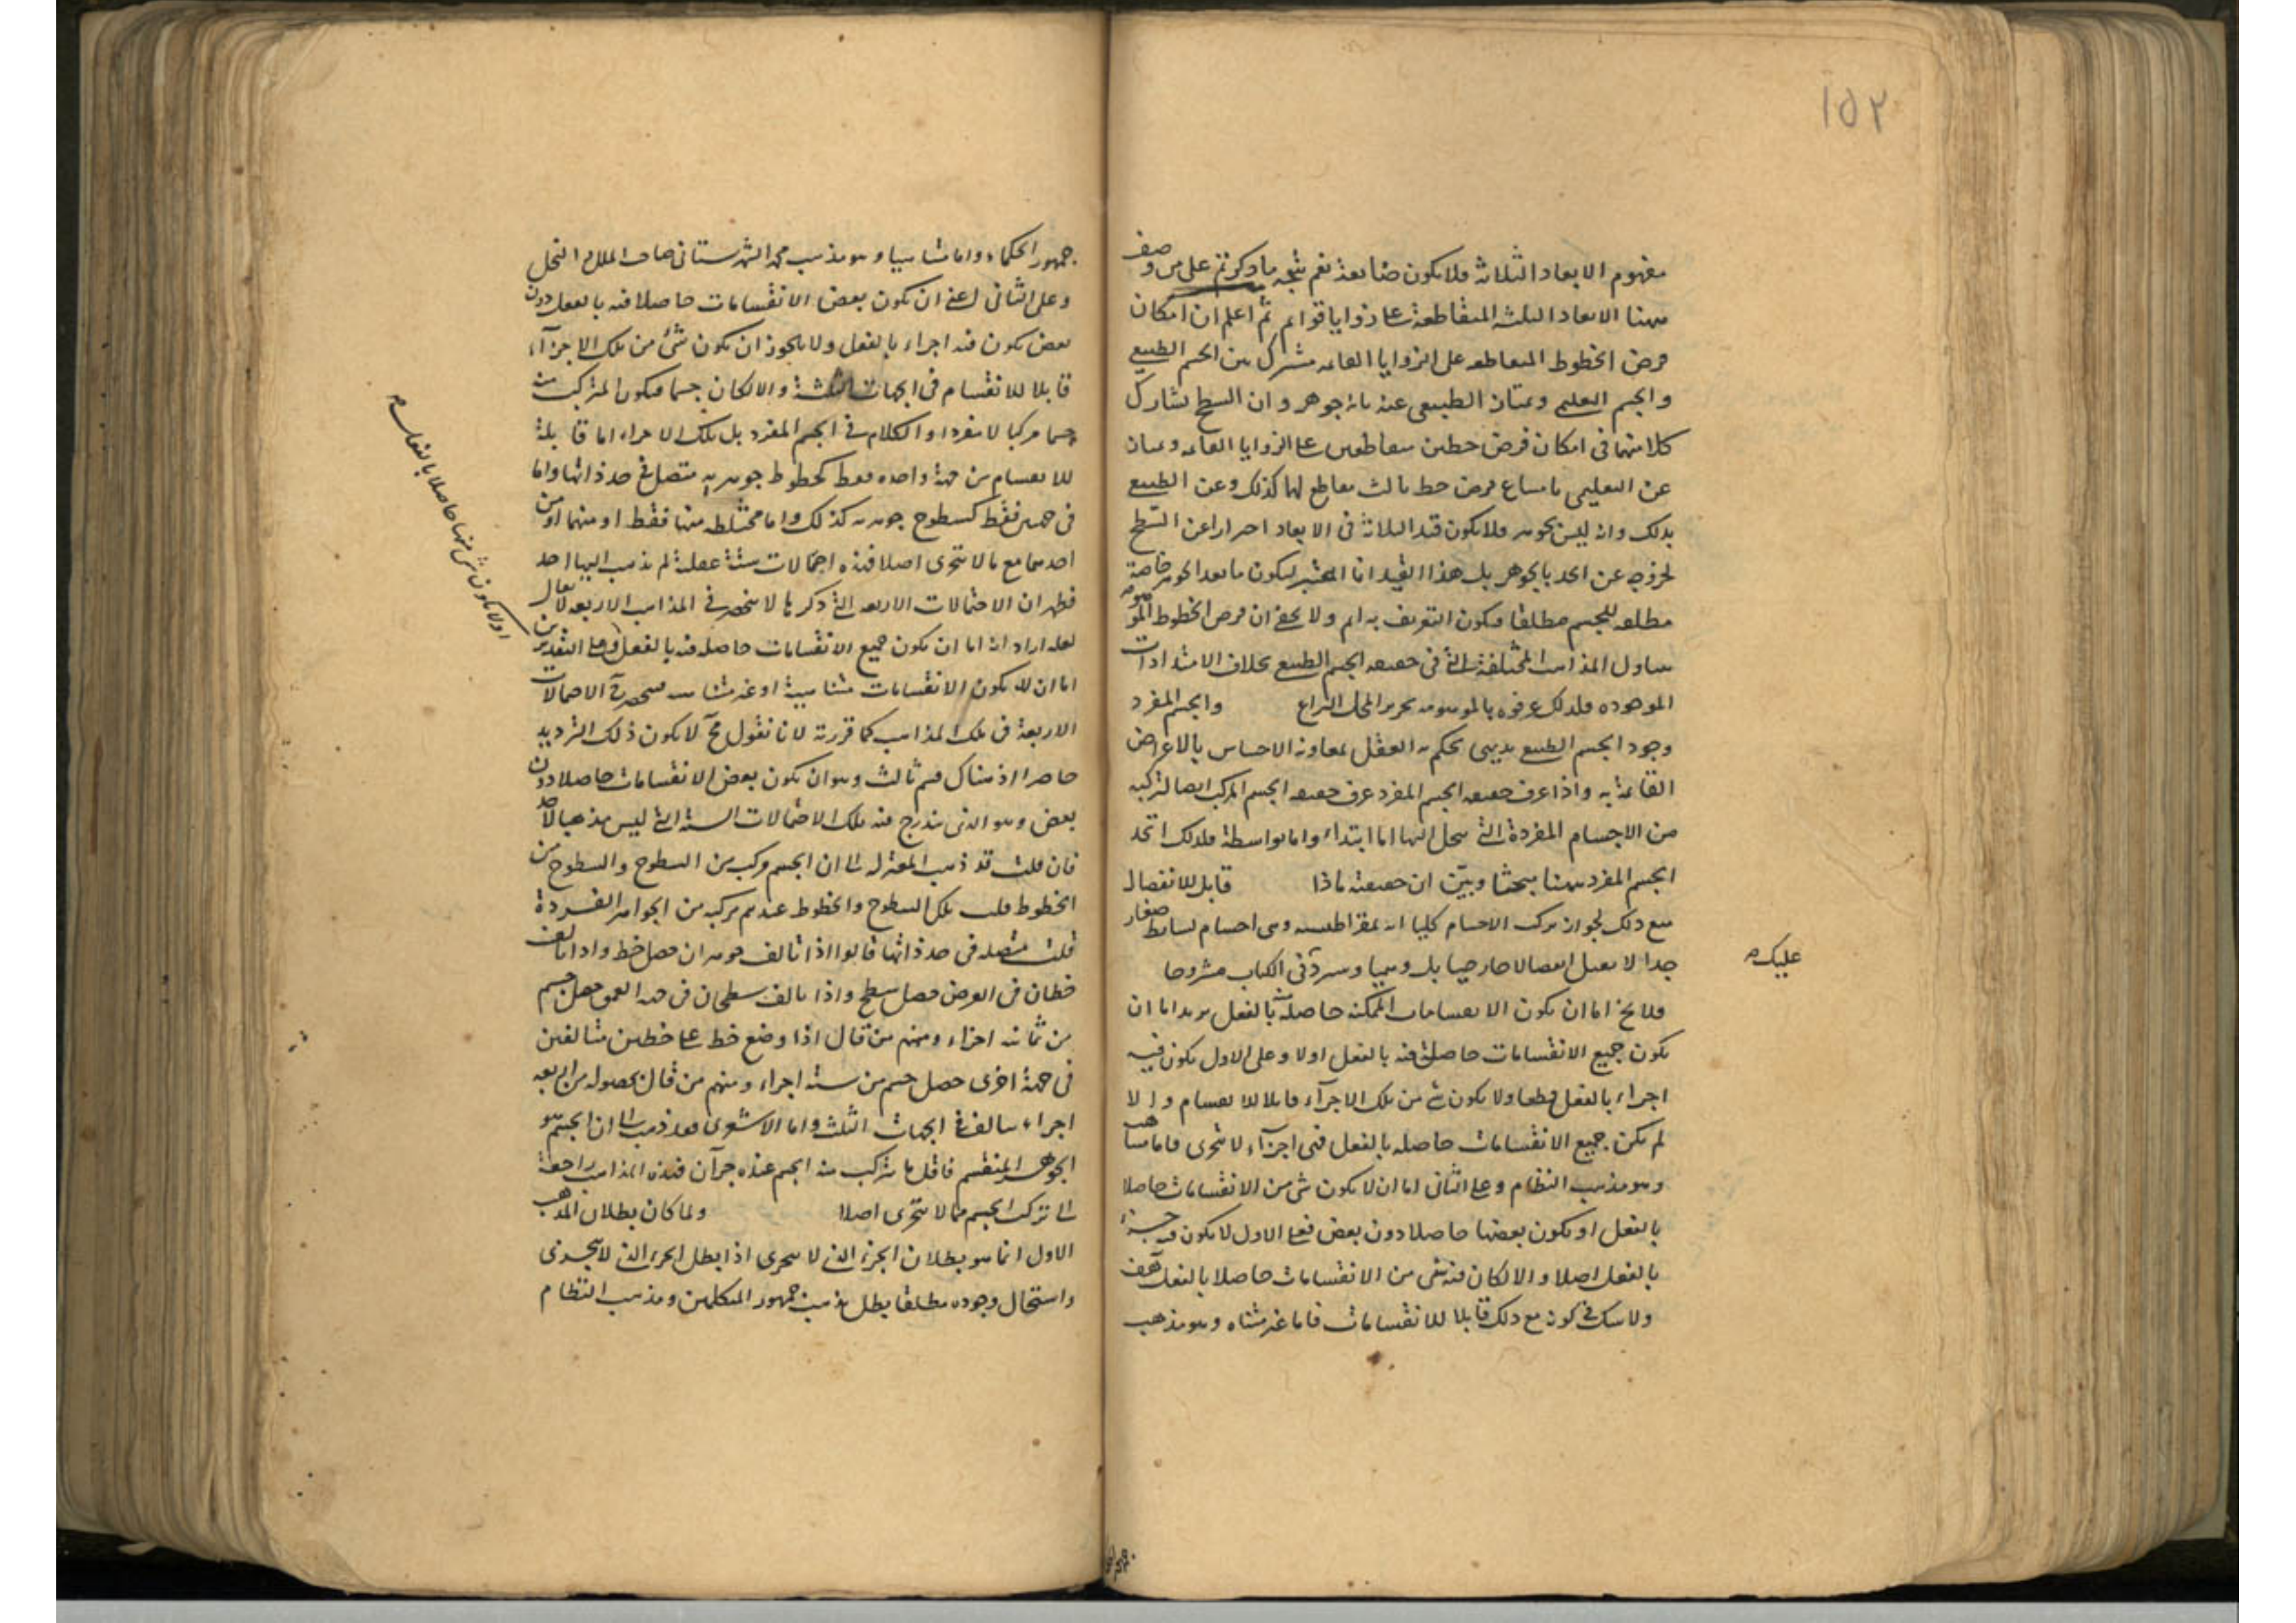 ١٥٢
مفهوم الابعاد الثلاثة فلا يكون ضابعا نعم يتجه ما ذكرتم على من وصف
ههنا الابعاد الثلثة المتقاطعة على زوايا قوايم ثم اعلم ان امكان
فرض الخطوط المتقاطعة على الزوايا القائمة مشترك بين الجسم الطبيعي
والجسم التعليمي ويمتاز الطبيعي عنه بانه جوهر وان السطح يشارك
كلا منهما في امكان فرض خطين متقاطعين على الزوايا القائمة ويمتاز
عن التعليمي بامتناع فرض خط ثالث مقاطع لهما كذلك وعن الطبيعي
بذلك وانه ليس بجوهر فلا يكون قيد الثلاثة في الابعاد احترازا عن السطح
لخروجه عن الحد بالجوهر بل هذا القيد انما اعتبر ليكون ما بعد الجوهر خاصة
مطلقة للجسم مطلقا فيكون التعريف به اتم ولا يخفى ان فرض الخطوط الموهومة
يتناول المذاهب المختلفة التي في حقيقة الجسم الطبيعي بخلاف الامتدادات
الموجودة فلذلك عرفوه بالموهومة تحريرا لمحل النزاع والجسم المفرد
وجود الجسم الطبيعي بديهي يحكم به العقل بمعاونة الاحساس بالاعراض
القائمة به واذا عرف حقيقة الجسم المفرد عرف حقيقة الجسم المركب ايضا لتركبه
من الاجسام المفردة التي ينحل اليها اما ابتداء واما بواسطة فلذلك اتخذ
الجسم المفرد ههنا مبحثا وبيّن ان حقيقته ماذا قابل للانفصال
مع ذلك لجواز تركب الاجسام كلها من ديمقراطيسية وهي اجسام بسائط صغار
جدا لا تقبل انفصالا خارجيا بل وهميا وسيرد في الكتاب مشروحا
عليك
فلا يخ اما ان يكون الانقسامات الممكنة حاصلة بالفعل يريد اما ان
يكون جميع الانقسامات حاصلة فيه بالفعل اولا وعلى الاول يكون فيه
اجزاء بالفعل قطعا ولا يكون شئ من تلك الاجزاء قابلا للانقسام والا
لم يكن جميع الانقسامات حاصلة بالفعل فهي اجزاء لا تتجزى فاما متناهية
وهو مذهب النظام وعلى الثاني اما ان لا يكون شئ من الانقسامات حاصلا
بالفعل او يكون بعضها حاصلا دون بعض فعلى الاول لا يكون فيه جزء
بالفعل اصلا والا لكان فيه شئ من الانقسامات حاصلا بالفعل هف
ولا شك في كونه مع ذلك قابلا للانقسامات فاما غير متناه وهو مذهب
جمهور الحكماء واما متناهيا وهو مذهب محمد الشهرستاني صاحب الملل والنحل
وعلى الثاني اعني ان يكون بعض الانقسامات حاصلا فيه بالفعل دون
بعض يكون فيه اجزاء بالفعل ولا يجوز ان يكون شئ من تلك الاجزاء
قابلا للانقسام في الجهات الثلثة والا لكان جسما فيكون المتركب منه
جسما مركبا لا مفردا والكلام في الجسم المفرد بل تلك الاجزاء اما قابلة
للانقسام من جهة واحدة فقط كخطوط جوهرية متصلة في حد ذاتها واما
في جهتين فقط كسطوح جوهرية كذلك واما مختلطة منها فقط او منهما او من
احدهما مع ما لا يتجزى اصلا فهذه احتمالات ستة عقلية لم يذهب اليها احد
فظهر ان الاحتمالات الاربعة التي ذكرها لا تنحصر في المذاهب الاربعة لا يقال
لعله اراد انه اما ان يكون جميع الانقسامات حاصلة فيه بالفعل وعلى التقديرين
اولا يكون شئ منها حاصلا بالفعل
اما ان يكون الانقسامات متناهية او غير متناهية فينحصر الاحتمالات
الاربعة في تلك المذاهب كما قررته لانا نقول ح لا يكون ذلك الترديد
حاصرا اذ هناك قسم ثالث وهو ان يكون بعض الانقسامات حاصلا دون
بعض وهو الذي يندرج فيه تلك الاحتمالات الستة التي ليس مذهبا لاحد
فان قلت قد ذهب المعتزلة الى ان الجسم مركب من السطوح والسطوح من
الخطوط قلت تلك السطوح والخطوط عندهم مركبة من الجواهر الفردة
قلت متصلة في حد ذاتها قالوا اذا تالف جوهران حصل خط واذا تالف
خطان في العرض حصل سطح واذا تالف سطحان في جهة العمق حصل جسم
من ثمانية اجزاء ومنهم من قال اذا وضع خط على خطين متالفين
في جهة اخرى حصل جسم من ستة اجزاء ومنهم من قال بحصوله من اربعة
اجزاء تتالف في الجهات الثلث واما الاشعري فقد ذهب الى ان الجسم هو
الجوهر المنقسم فاقل ما يتركب منه الجسم عنده جزآن فهذه المذاهب راجعة
الى تركب الجسم مما لا يتجزى اصلا ولما كان بطلان المذهب
الاول انما هو بطلان الجزء الذي لا يتجزى اذا بطل الجزء الذي لا يتجزى
واستحال وجوده مطلقا بطل مذهب جمهور المتكلمين ومذهب النظام